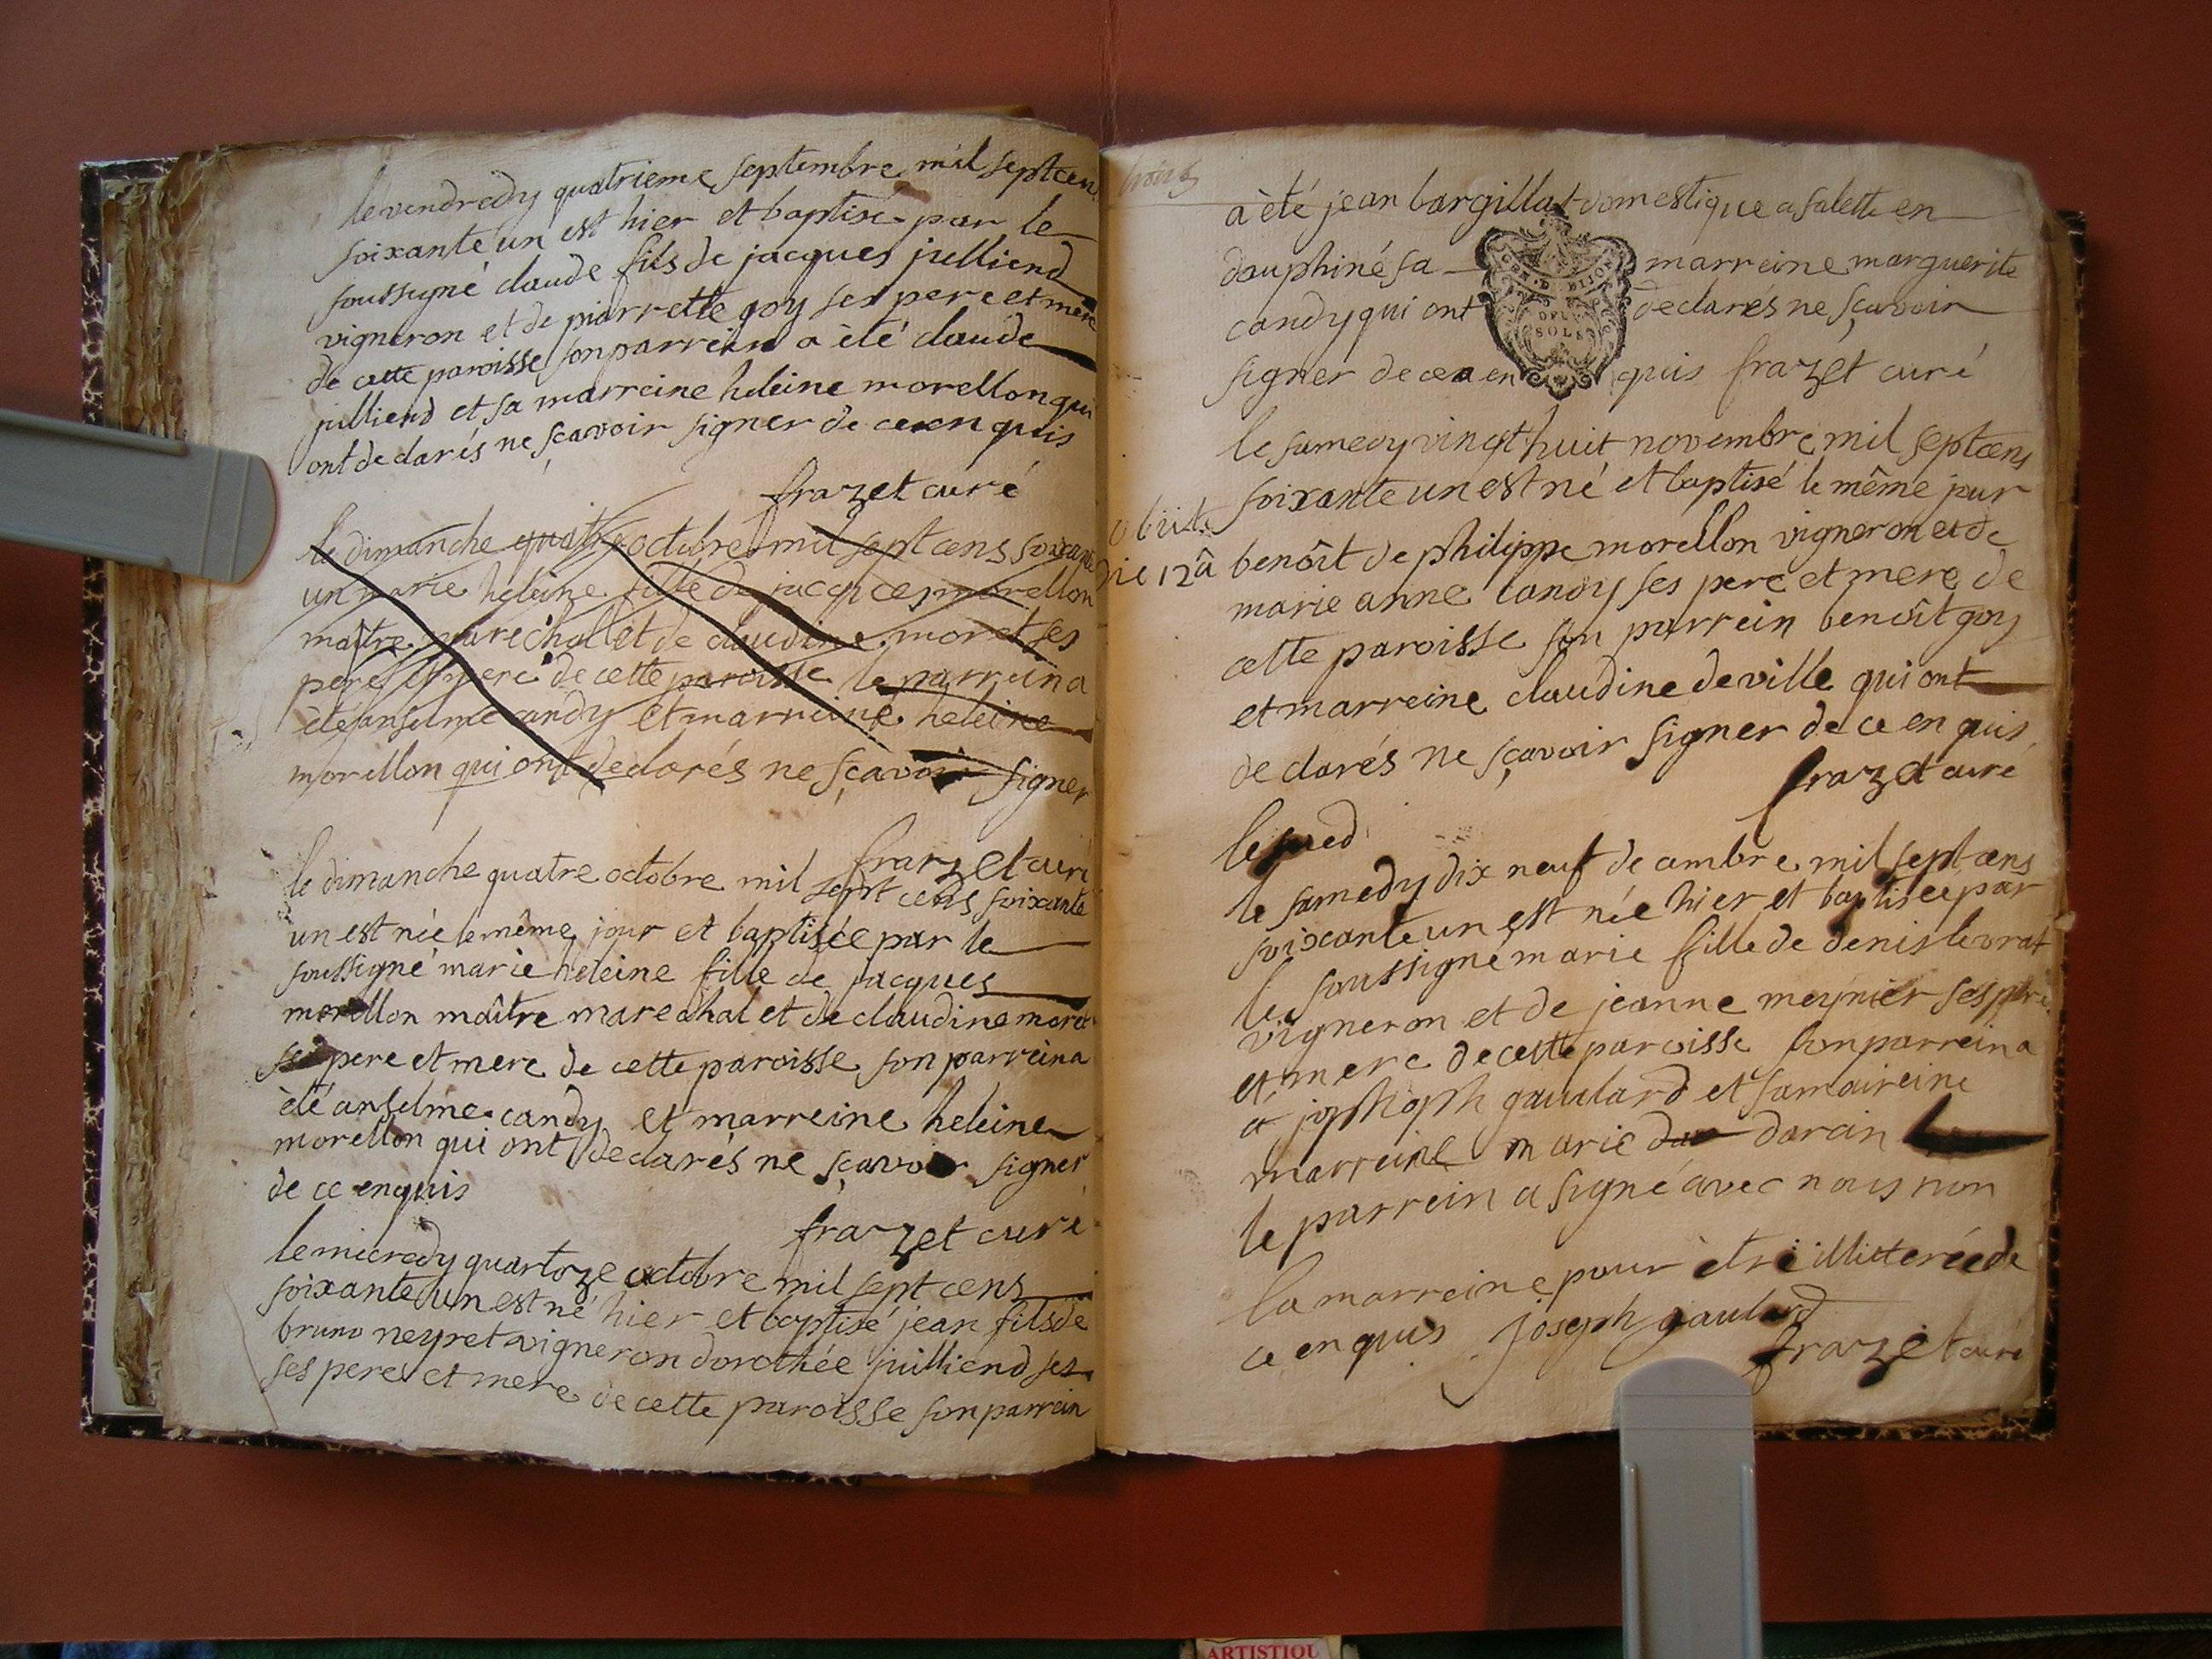 le vendredy quatrieme septembre mil sept cens
soixante un est hier et baptisé par le
soussigné claude fils de jacques julliend
vigneron et de piarrette goy ses pere et mere
de cette paroisse son parrein a èté claude
julliend et sa marreine heleine morellon qui
ont declarés ne sçavoir signer de ce en quis
frazet curé
le dimanche quatre octobre mil sept cens soixante
un marie heleine fille de jacques morellon
maître marechal et de claudine moret ses
pere et mere de cette paroisse le parrein a
èté anselme candy et marreine heleine
morellon qui ont declarés ne sçavoir signer
frazet curé
le dimanche quatre octobre mil sept cens soixante
un est née le même jour et baptisée par le
soussigné marie heleine fille de jacques
morellon maître marechal et de claudine moret
ses pere et mere de cette paroisse son parrein a
èté anselme candy et marreine heleine
morellon qui ont declarés ne sçavoir signer
de ce enquis
frazet curé
le mecredy quartoze octobre mil sept cens
soixante un est né hier et baptisé jean fils de
bruno neyret vigneron dorothée juilliend ses
ses pere et mere de cette paroisse son parrein
a èté jean bargillat domestique a salette en
dauphiné sa marreine marguerite
candy qui ont declarés ne sçavoir
signer de ce en quis frazet curé
GEN. D. DIJON
DEUX
SOLS
le samedy vingt huit novembre mil sept cens
soixante un est né et baptisé le même jour
obiit
die 12a
benoît de philippe morellon vigneron et de
marie anne candy ses pere et mere de
cette paroisse son parrein benoît goy
et marreine claudine deville qui ont
declarés ne sçavoir signer de ce en quis
frazet curé
le
le samedy dix neuf decembre mil sept cens
soixante un est née hier et baptisée par
le soussigné marie fille de denis levrat
vigneron et de jeanne meynier ses pere
et mere de cette paroisse son parrein a
joseph gaulard et sa maireine
marreine marie darcin
le parrein a signé avec nous non
la marreine pour être illiterée de
ce en quis joseph gaulard
frazet curé
ARTISTIQU